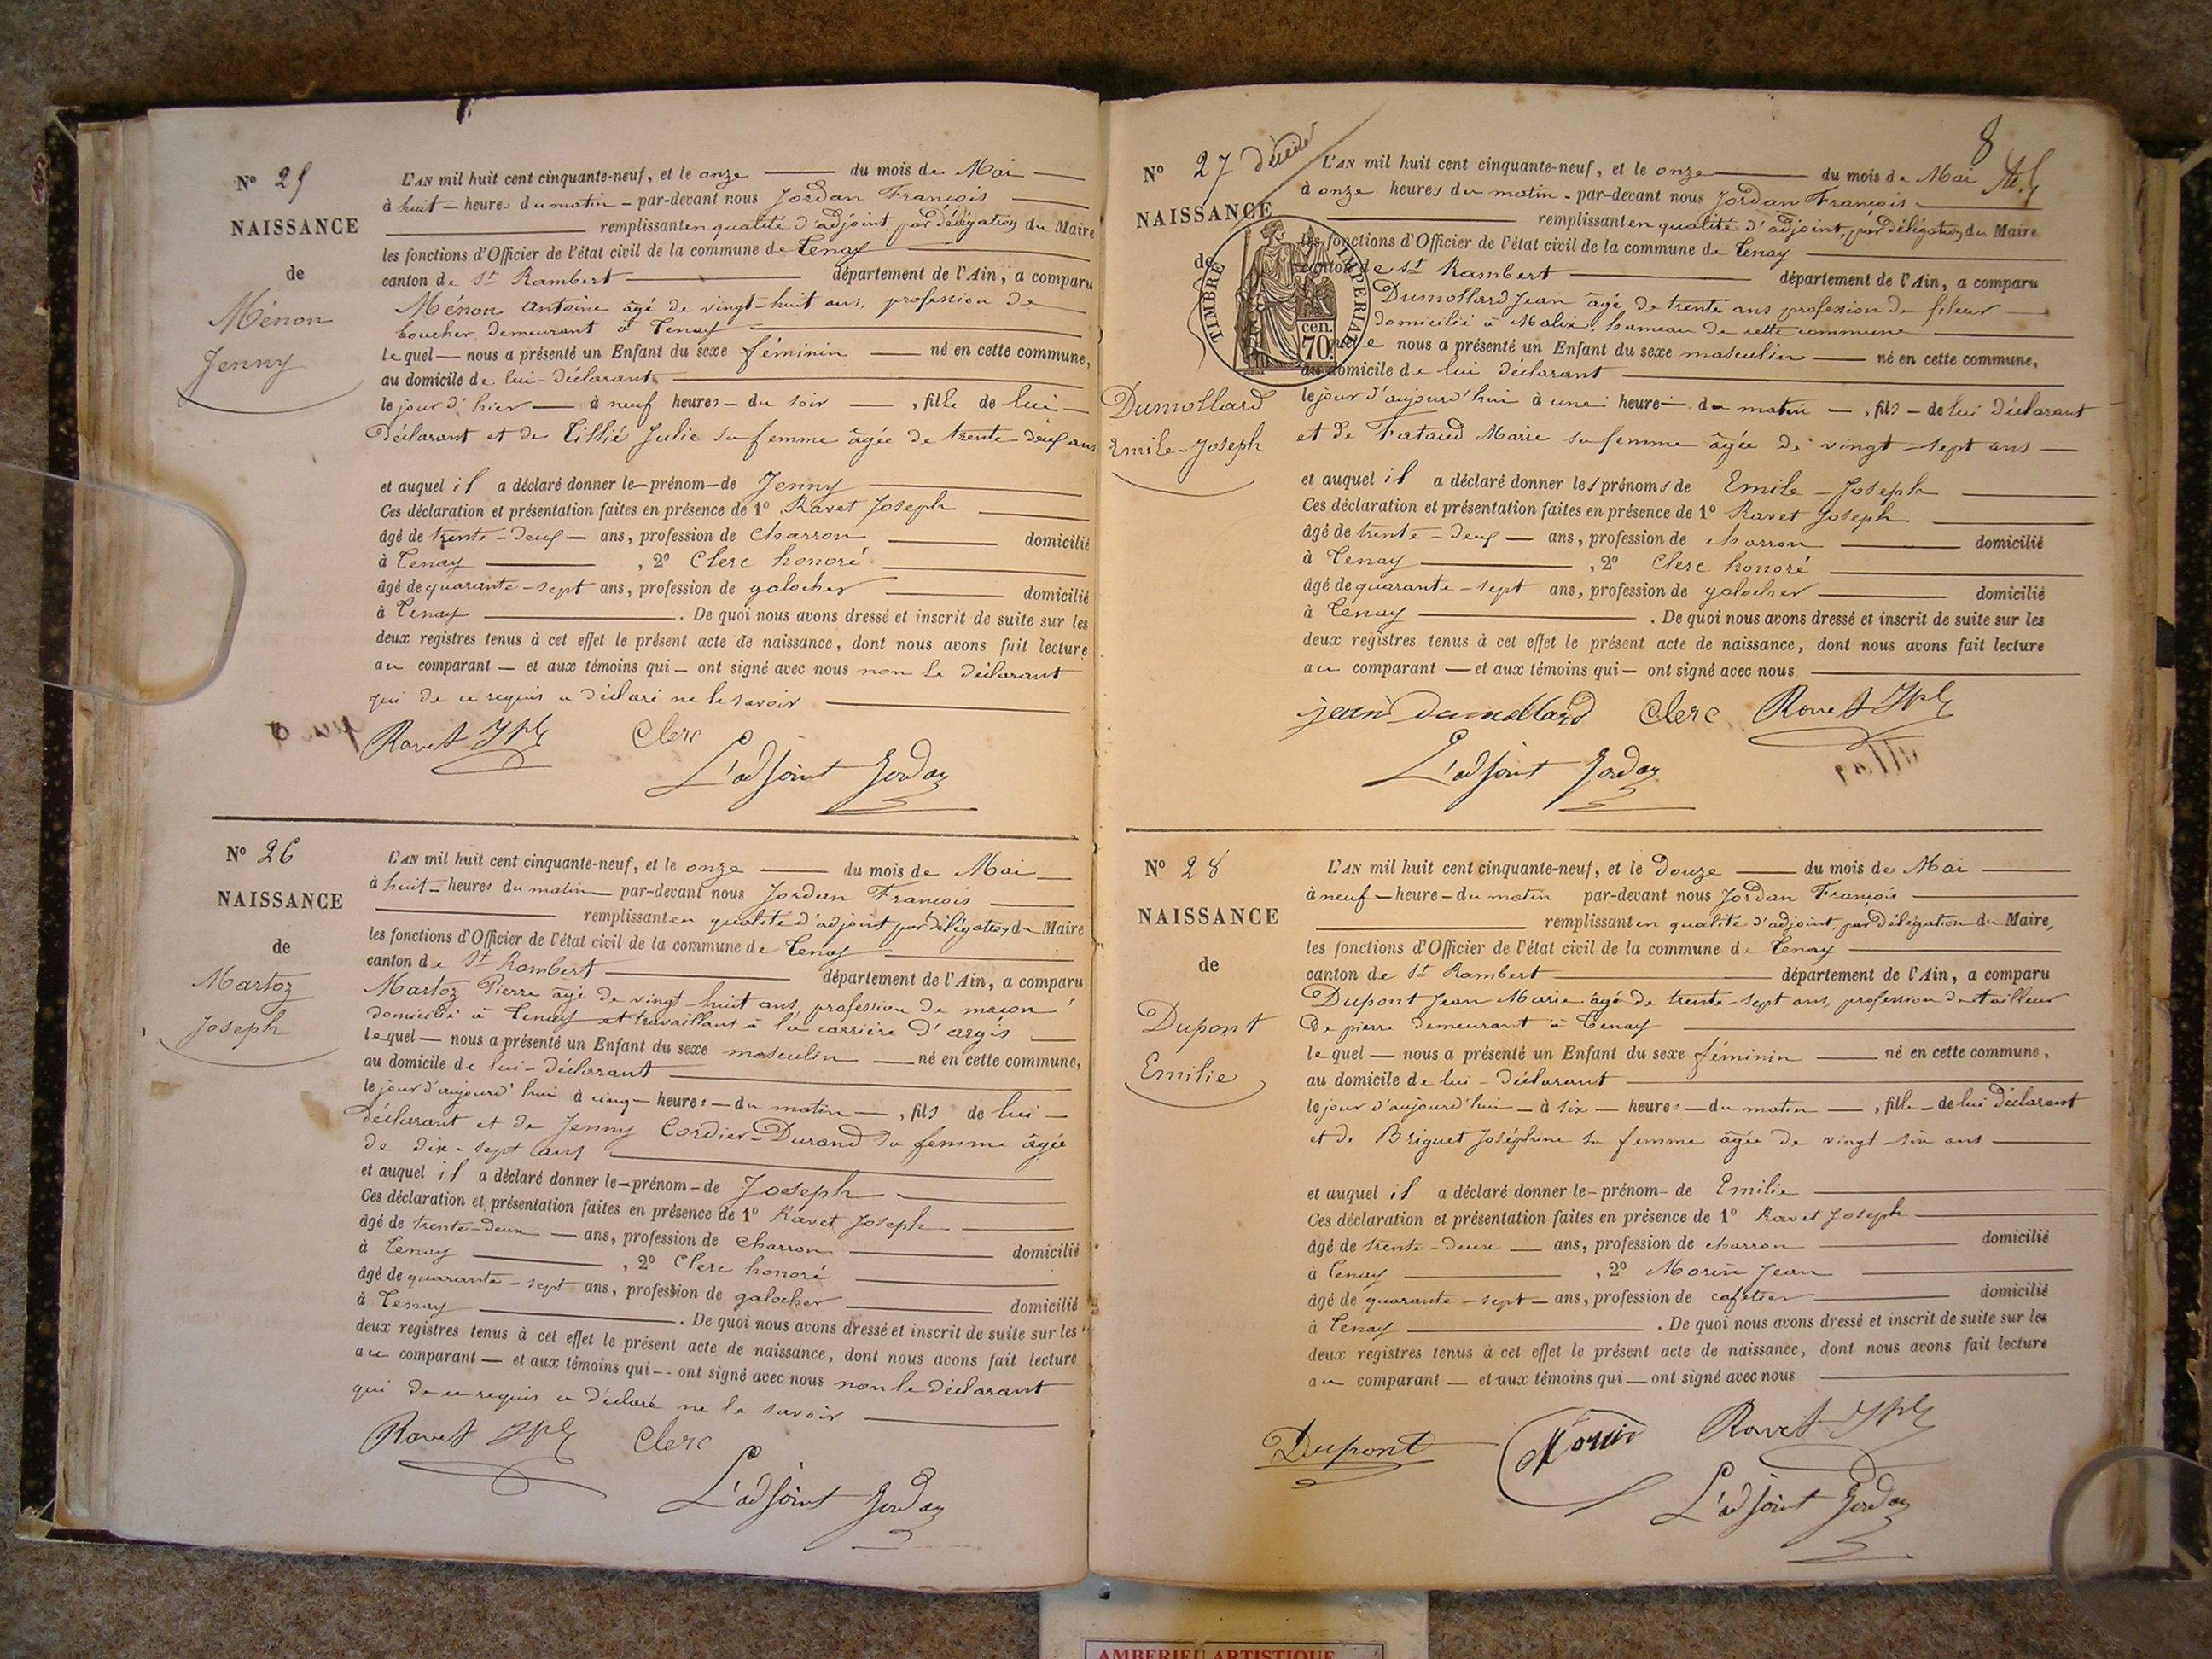 N° 25
NAISSANCE
de
Ménon
Jenny
L'AN mil huit cent cinquante-neuf, et le onze du mois de Mai
à huit heures du matin par-devant nous Jordan François
remplissant en qualité d'adjoint par délégation du Maire
les fonctions d'Officier de l'état civil de la commune de Tenay
canton de St Rambert département de l'Ain, a comparu
Ménon Antoine âgé de vingt-huit ans, profession de
boucher demeurant à Tenay
lequel nous a présenté un Enfant du sexe féminin né en cette commune,
au domicile de lui-déclarant
le jour d'hier à neuf heures du soir, fille de lui
déclarant et de Tillié Julie sa femme âgée de trente deux ans
et auquel il a déclaré donner le prénom de Jenny
Ces déclaration et présentation faites en présence de 1° Ravet Joseph
âgé de trente-deux ans, profession de charron domicilié
à Tenay, 2° Clerc honoré
âgé de quarante-sept ans, profession de galocher domicilié
à Tenay. De quoi nous avons dressé et inscrit de suite sur les
deux registres tenus à cet effet le présent acte de naissance, dont nous avons fait lecture
au comparant et aux témoins qui ont signé avec nous non le déclarant
qui de ce requis a déclaré ne le savoir
Ravet Jph Clerc
L'adjoint Jordan
N° 26
NAISSANCE
de
Martoz
Joseph
L'AN mil huit cent cinquante-neuf, et le onze du mois de Mai
à huit heures du matin par-devant nous Jordan François
remplissant en qualité d'adjoint par délégation du Maire
les fonctions d'Officier de l'état civil de la commune de Tenay
canton de St Rambert département de l'Ain, a comparu
Martoz Pierre âgé de vingt-huit ans, profession de maçon
domicilié à Tenay et travaillant à la carrière d'argis
lequel nous a présenté un Enfant du sexe masculin né en cette commune,
au domicile de lui-déclarant
le jour d'aujourd'hui à cinq heures du matin, fils de lui
déclarant et de Jenny Cordier-Durand sa femme âgée
de dix-sept ans
et auquel il a déclaré donner le prénom de Joseph
Ces déclaration et présentation faites en présence de 1° Ravet Joseph
âgé de trente-deux ans, profession de charron domicilié
à Tenay, 2° Clerc honoré
âgé de quarante-sept ans, profession de galocher domicilié
à Tenay. De quoi nous avons dressé et inscrit de suite sur les
deux registres tenus à cet effet le présent acte de naissance, dont nous avons fait lecture
au comparant et aux témoins qui ont signé avec nous non le déclarant
qui de ce requis a déclaré ne le savoir
Ravet Jph Clerc
L'adjoint Jordan
8
N° 27 décédé
NAISSANCE
de
TIMBRE IMPERIAL
cen.
70.
Dumollard
Emile-Joseph
L'AN mil huit cent cinquante-neuf, et le onze du mois de Mai
à onze heures du matin par-devant nous Jordan François
remplissant en qualité d'adjoint, par délégation du Maire
les fonctions d'Officier de l'état civil de la commune de Tenay
canton de St Rambert département de l'Ain, a comparu
Dumollard Jean âgé de trente ans profession de fileur
domicilié à Malix, hameau de cette commune
lequel nous a présenté un Enfant du sexe masculin né en cette commune,
au domicile de lui déclarant
le jour d'aujourd'hui à une heure du matin, fils de lui déclarant
et de Marie sa femme âgée de vingt-sept ans
et auquel il a déclaré donner les prénoms de Emile-Joseph
Ces déclaration et présentation faites en présence de 1° Ravet Joseph
âgé de trente-deux ans, profession de charron domicilié
à Tenay, 2° Clerc honoré
âgé de quarante-sept ans, profession de galocher domicilié
à Tenay. De quoi nous avons dressé et inscrit de suite sur les
deux registres tenus à cet effet le présent acte de naissance, dont nous avons fait lecture
au comparant et aux témoins qui ont signé avec nous
jean dumollard Clerc Ravet Jph
L'adjoint Jordan
N° 28
NAISSANCE
de
Dupont
Emilie
L'AN mil huit cent cinquante-neuf, et le douze du mois de Mai
à neuf heure du matin par-devant nous Jordan François
remplissant en qualité d'adjoint, par délégation du Maire,
les fonctions d'Officier de l'état civil de la commune de Tenay
canton de St Rambert département de l'Ain, a comparu
Dupont Jean Marie âgé de trente-sept ans, profession de tailleur
de pierre demeurant à Tenay
lequel nous a présenté un Enfant du sexe féminin né en cette commune,
au domicile de lui-déclarant
le jour d'aujourd'hui à six heures du matin, fille de lui déclarant
et de Briguet Joséphine sa femme âgée de vingt-six ans
et auquel il a déclaré donner le prénom de Emilie
Ces déclaration et présentation faites en présence de 1° Ravet Joseph
âgé de trente-deux ans, profession de charron domicilié
à Tenay, 2° Morin Jean
âgé de quarante-sept ans, profession de cafetier domicilié
à Tenay. De quoi nous avons dressé et inscrit de suite sur les
deux registres tenus à cet effet le présent acte de naissance, dont nous avons fait lecture
au comparant et aux témoins qui ont signé avec nous
Dupont Morin Ravet Jph
L'adjoint Jordan
AMBERIEU ARTISTIQUE